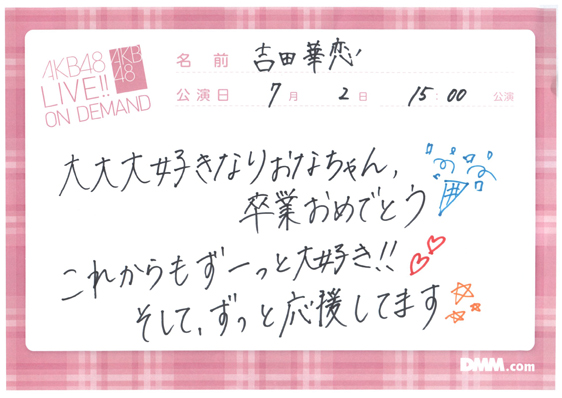 AKB48
LIVE!!
ON DEMAND
AKB
48
名前 吉田華恋
公演日 7月 2日 15:00 公演
大大大好きなりおなちゃん,
卒業おめでとう
これからもずーっと大好き!!
そして,ずっと応援してます
DMM.com